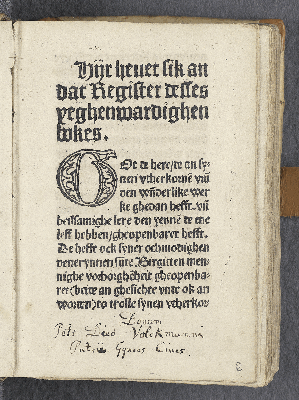 Hijr heuet sik an
dat Register desses
yeghenwardighen
bokes.
GOt de here/de an sy-
nen vtherkornē vñ
den wūderlike wer
ke ghedan hefft. vñ
heilsamighe lere den yennē de ene
leff hebben/gheopenbaret hefft.
De hefft ock syner othmodighen
denerynnen sūte Birgitten men-
nighe vorborghēheit gheopenba-
ret (beide an ghesichte vnde ok an
worden) to troste synen vtherkor
Donum
Joh. Volckmanni
Cives.